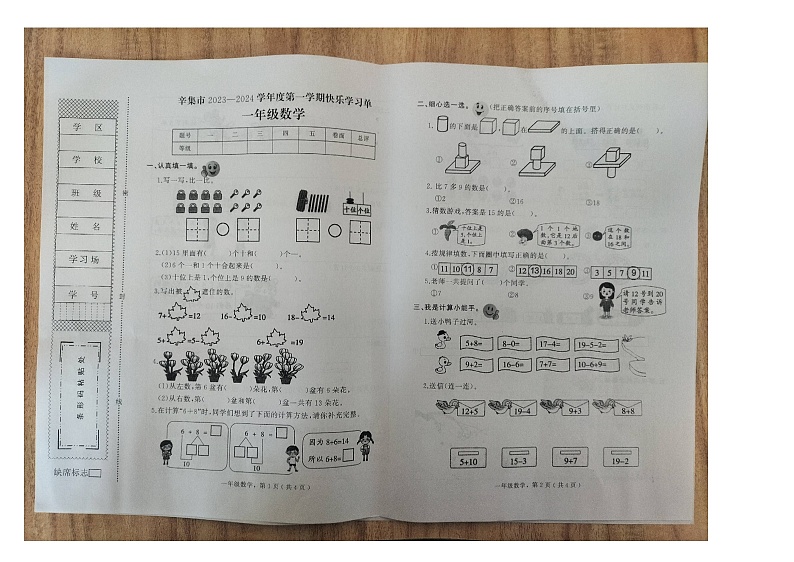 学 区
学 校
班 级
姓 名
学习场
学 号
密
封
线
条形码粘贴处
缺席标志□
辛集市 2023—2024 学年度第一学期快乐学习单
一年级数学
题号 一 二 三 四 五 卷面 总评
等级
一、认真填一填。
1.写一写,比一比。
十位 个位
2.(1)15 里面有( )个十和( )个一。
(2)6 个一和 1 个十合起来是( )。
(3)十位上是 1,个位上是 9 的数是( )。
3.写出被 遮住的数。
7+ =12 16- =10 18- =14
5+ =5- 6+ =19
4.
(1)从左数,第 6 盆有( )朵花,第( )盆有 6 朵花。
(2)从右数,第( )盆和第( )盆一共有 13 朵花。
5.在计算“6+8”时,同学们想到了下面的计算方法,请你补充完整。
6 + 8 = □
10
6 + 8 = □
10
因为 8+6=14
所以 6+8=□
一年级数学, 第 1 页 ( 共 4 页 )
二、细心选一选。 (把正确答案前的序号填在括号里)
1. 的下面是 , 在 的上面、搭得正确的是( )。
① ② ③
2. 比 7 多 9 的数是( )。
①2 ②16 ③18
3.猜数游戏,答案是 15 的是( )。
① 十位上是 5,个位上是 1。
② 1 个 1 个地数,它是 12 后面第 3 个数。
③ 这个数在 18 和 16 之间。
4.按规律填数,下面圈中填写正确的是( )。
① 11 10 11 8 7 ② 12 13 16 18 20 ③ 3 5 7 9 11
5.老师一共提问了( )个同学。
①7 ②8 ③9
请 12 号到 20 号同学告诉老师答案。
三、我是计算小能手。
1.送小鸭子过河。
5+8= 8-0= 17-4= 19-5-2=
9+2= 16-6= 7+7= 10-6+9=
2.送信(连一连)。
12+5 19-4 9+3 8+8
5+10 15-3 9+7 19-2
一年级数学, 第 2 页 ( 共 4 页 )